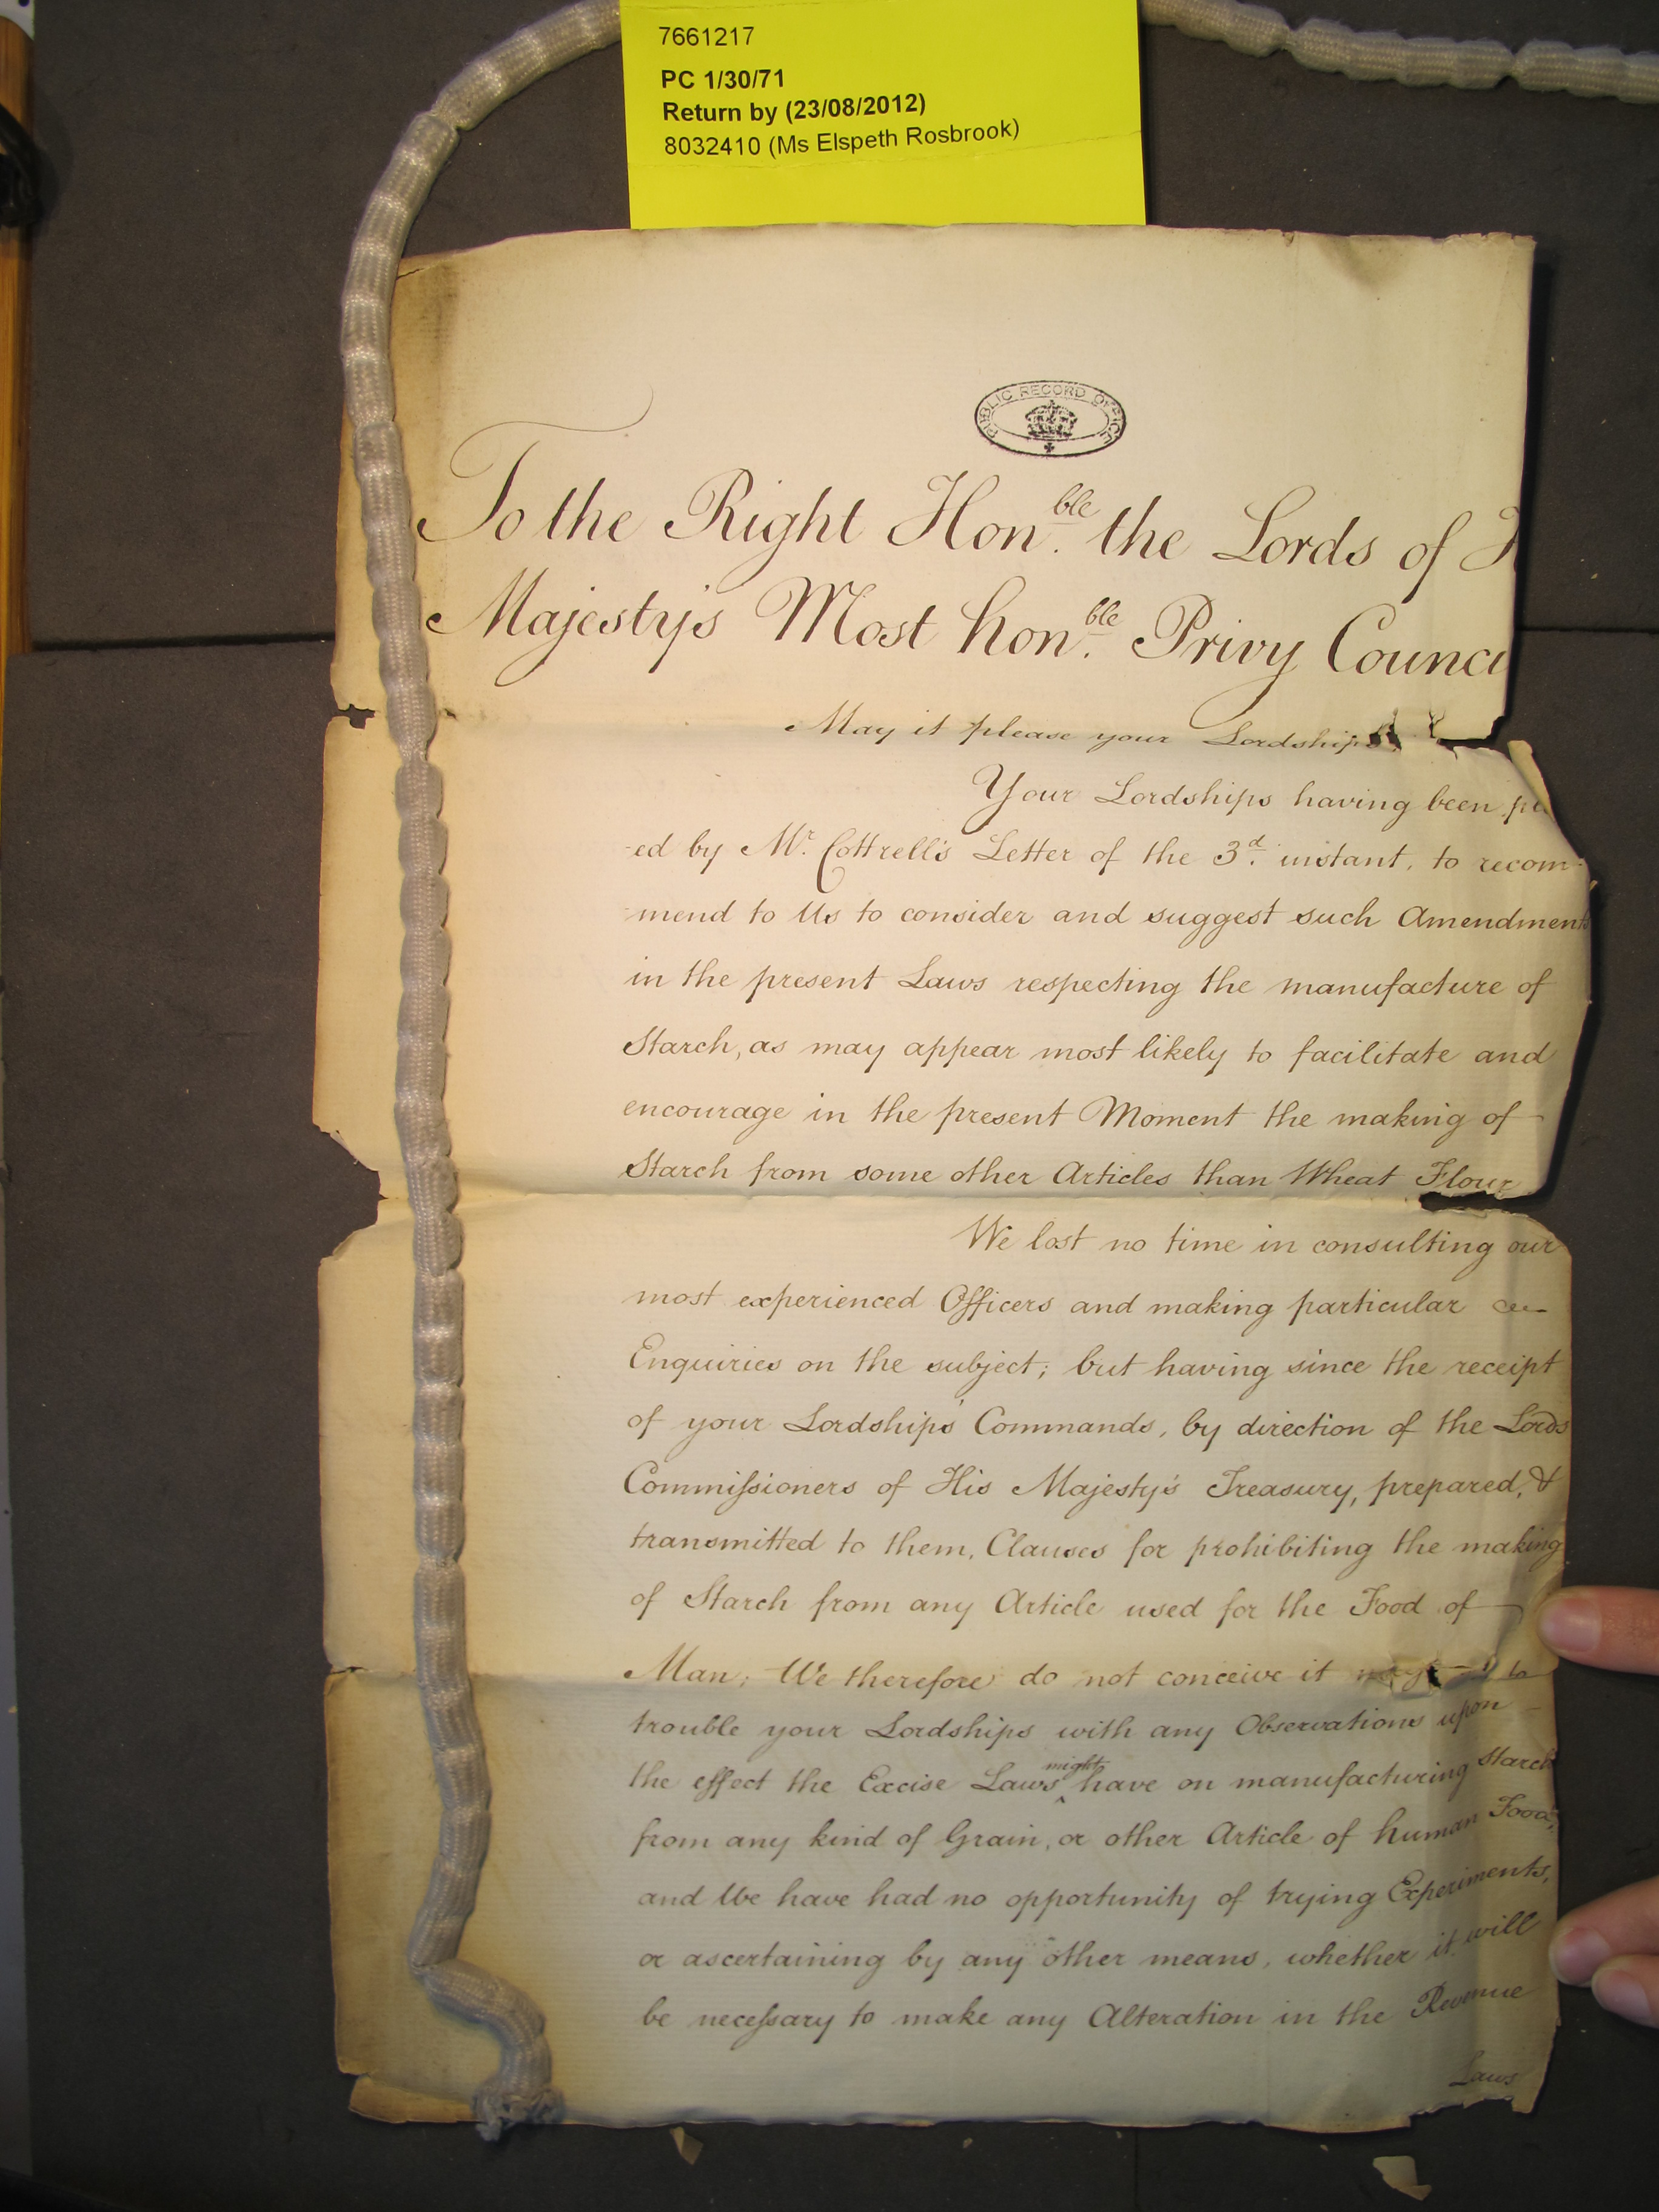 7661217
PC 1/30/71
Return by (23/08/2012)
8032410 (Ms Elspeth Rosbrook)
PUBLIC RECORD OFFICE
To the Right Hon.ble the Lords of
Majesty's Most hon.ble Privy Counci
May it please your Lordships
Your Lordships having been
-ed by Mr. Cottrell's Letter of the 3d. instant, to recom-
mend to Us to consider and suggest such Amendments
in the present Laws respecting the manufacture of
Starch, as may appear most likely to facilitate and
encourage in the present Moment the making of
Starch from some other Articles than Wheat Flour
We lost no time in consulting our
most experienced Officers and making particular
Enquiries on the subject; but having since the receipt
of your Lordships' Commands, by direction of the Lords
Commissioners of His Majesty's Treasury, prepared, &
transmitted to them, Clauses for prohibiting the making
of Starch from any Article used for the Food of
Man; We therefore do not conceive it to
trouble your Lordships with any Observations upon
the effect the Excise Laws might have on manufacturing Starch
from any kind of Grain, or other Article of human Food,
and We have had no opportunity of trying Experiments,
or ascertaining by any other means, whether it will
be necessary to make any Alteration in the Revenue
Laws